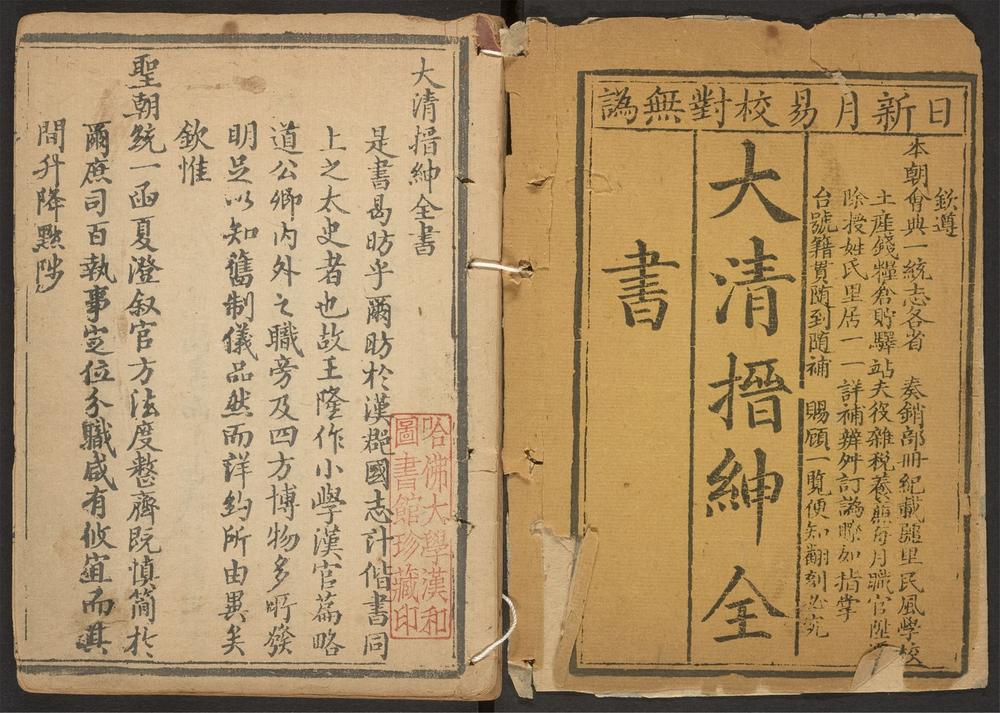 日新月易校對無譌
欽遵
本朝會典一統志各省 奏銷部冊紀載疆里民風學校
土產錢糧倉貯驛站夫役雜稅養廉每月職官陞遷
除授姓氏里居一一詳補辨舛訂譌瞭如指掌
台號籍貫隨到隨補 賜顧一覽便知翻刻必究
大清搢紳全
書
大清搢紳全書
是書曷昉乎爾昉於漢郡國志計偕書同
上之太史者也故王隆作小學漢官篇略
道公卿內外之職旁及四方博物多所發
明足以知舊制儀品然而詳約所由異矣
欽惟
聖朝統一函夏澄叙官方法度整齊既慎簡於
爾庶司百執事定位分職咸有攸宜而其
間升降黜陟
哈佛大學漢和
圖書館珍藏印